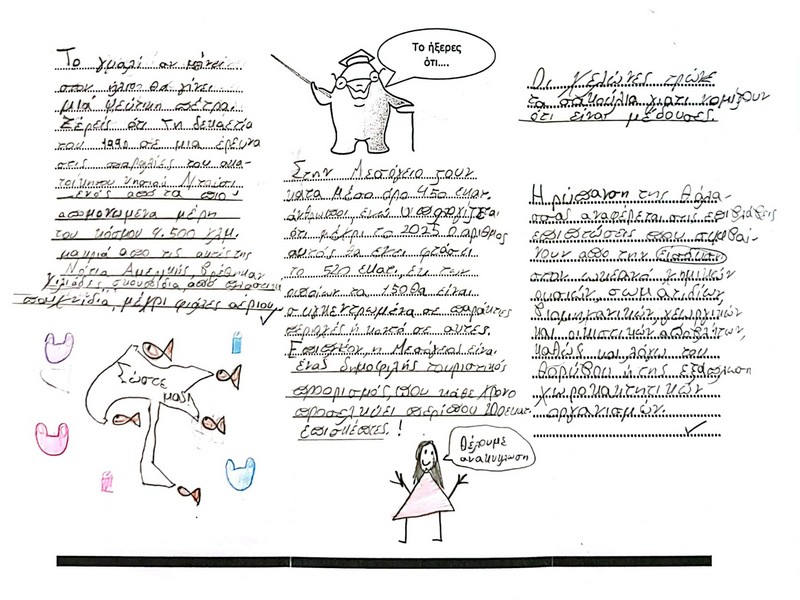 Το γυαλί αν μείνει
στον ήλιο θα γίνει
μια ψεύτικη πέτρα.
Ξέρεις ότι Τη δεκαετία
του 1990 σε μια έρευνα
στις παραλίες του ακα-
τοίκητου νησιού Ντούσι
ένός από τα πιο
απομονωμένα μέρη
του κόσμου 4.500 χλμ.
μακριά από τις ακτές της
Νότια Αμερικής, βρέθηκαν
χιλιάδες σκουπίδια, από πλαστικά
παιχνίδια, μέχρι φιάλες αέριου.
Σώστε
μας!
Το ήξερες
ότι....
Στην Μεσόγειο ζουν
κατά μέσο όρο 450 εκατ.
άνθρωποι, ενώ υπολογίζεται
ότι μέχρι το 2025 ο αριθμός
αυτός θα έχει φτάσει
το 520 εκατ., εκ των
οποίων τα 150 θα είναι
συγκεντρωμένα σε παράκτιες
περιοχές ή κοντά σε αυτές.
Επιπλέον, η Μεσόγειος είναι
ένας δημοφιλής τουριστικός
προορισμός, που κάθε χρόνο
προσελκύει περίπου εκατ.
επισκέπτες.!
Θέλουμε
ανακύκλωση
Οι χελώνες τρώνε
τα σακούλια γιατί νομίζουν
ότι είναι μέδουσες.
Η ρύπανση της θάλα-
σσας αναφέρεται στις επιβλαβείς
επιπτώσεις που συμβαί-
νουν από την Είσπλωση
στον ωκεανό χημικών
ουσιών, σωματιδίων,
βιομηχανικών, γεωργικών
και οικιστικών αποβλήτων,
καθώς και λόγω του
θορύβου ή της εξάπλωση
χωροκατητικών
οργανισμών.